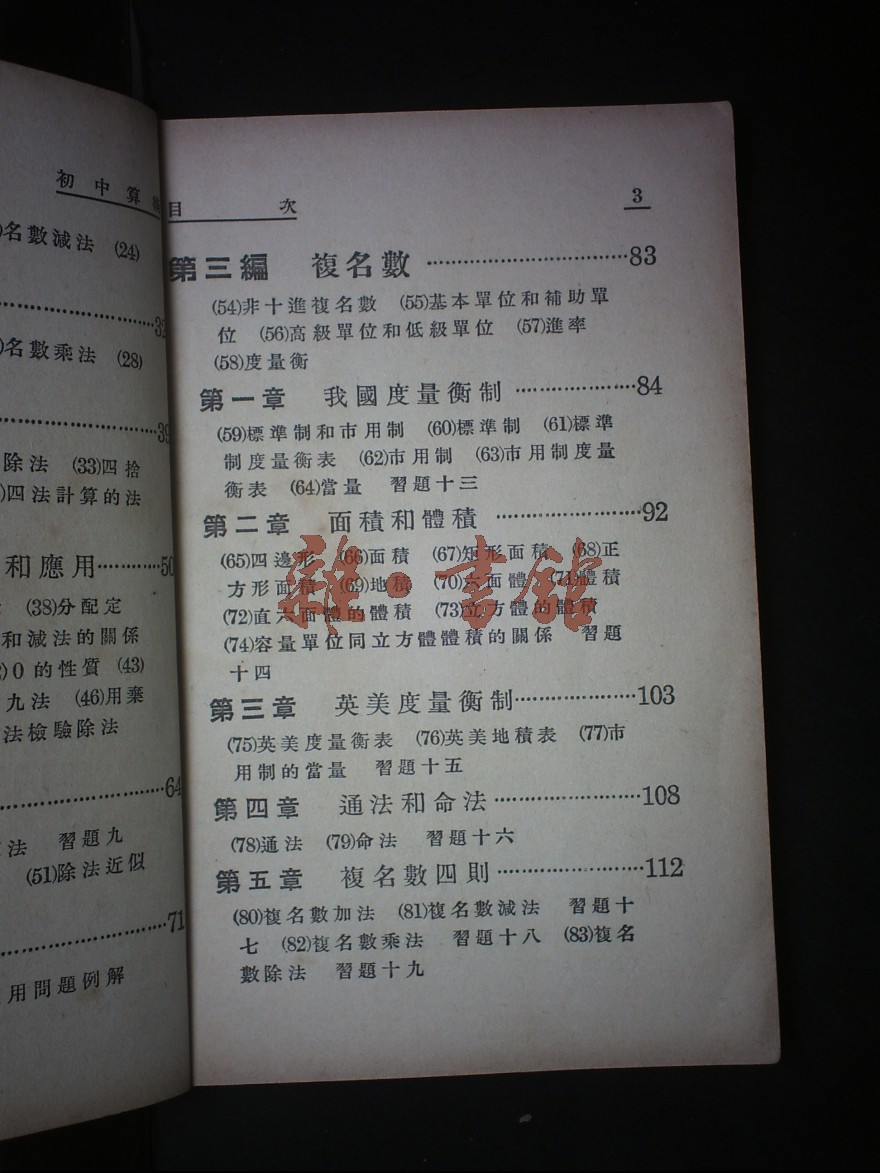 初中算
名數減法 (24)
32
名數乘法 (28)
39
除法 (33)四捨
四法計算的法
和應用…………50
(38)分配定
和減法的關係
0的性質 (43)
九法 (46)用棄
法檢驗除法
64
法 習題九
(51)除法近似
71
用問題例解
目次 3
第三編 複名數……………………………83
(54)非十進複名數 (55)基本單位和補助單
位 (56)高級單位和低級單位 (57)進率
(58)度量衡
第一章 我國度量衡制…………………84
(59)標準制和市用制 (60)標準制 (61)標準
制度量衡表 (62)市用制 (63)市用制度量
衡表 (64)當量 習題十三
第二章 面積和體積……………………92
(65)四邊形 (66)面積 (67)矩形面積 (68)正
方形面積 (69)地積 (70)六面體 (71)體積
(72)直六面體的體積 (73)立方體的體積
(74)容量單位同立方體體積的關係 習題
十四
第三章 英美度量衡制…………………103
(75)英美度量衡表 (76)英美地積表 (77)市
用制的當量 習題十五
第四章 通法和命法……………………108
(78)通法 (79)命法 習題十六
第五章 複名數四則……………………112
(80)複名數加法 (81)複名數減法 習題十
七 (82)複名數乘法 習題十八 (83)複名
數除法 習題十九
雜·書館